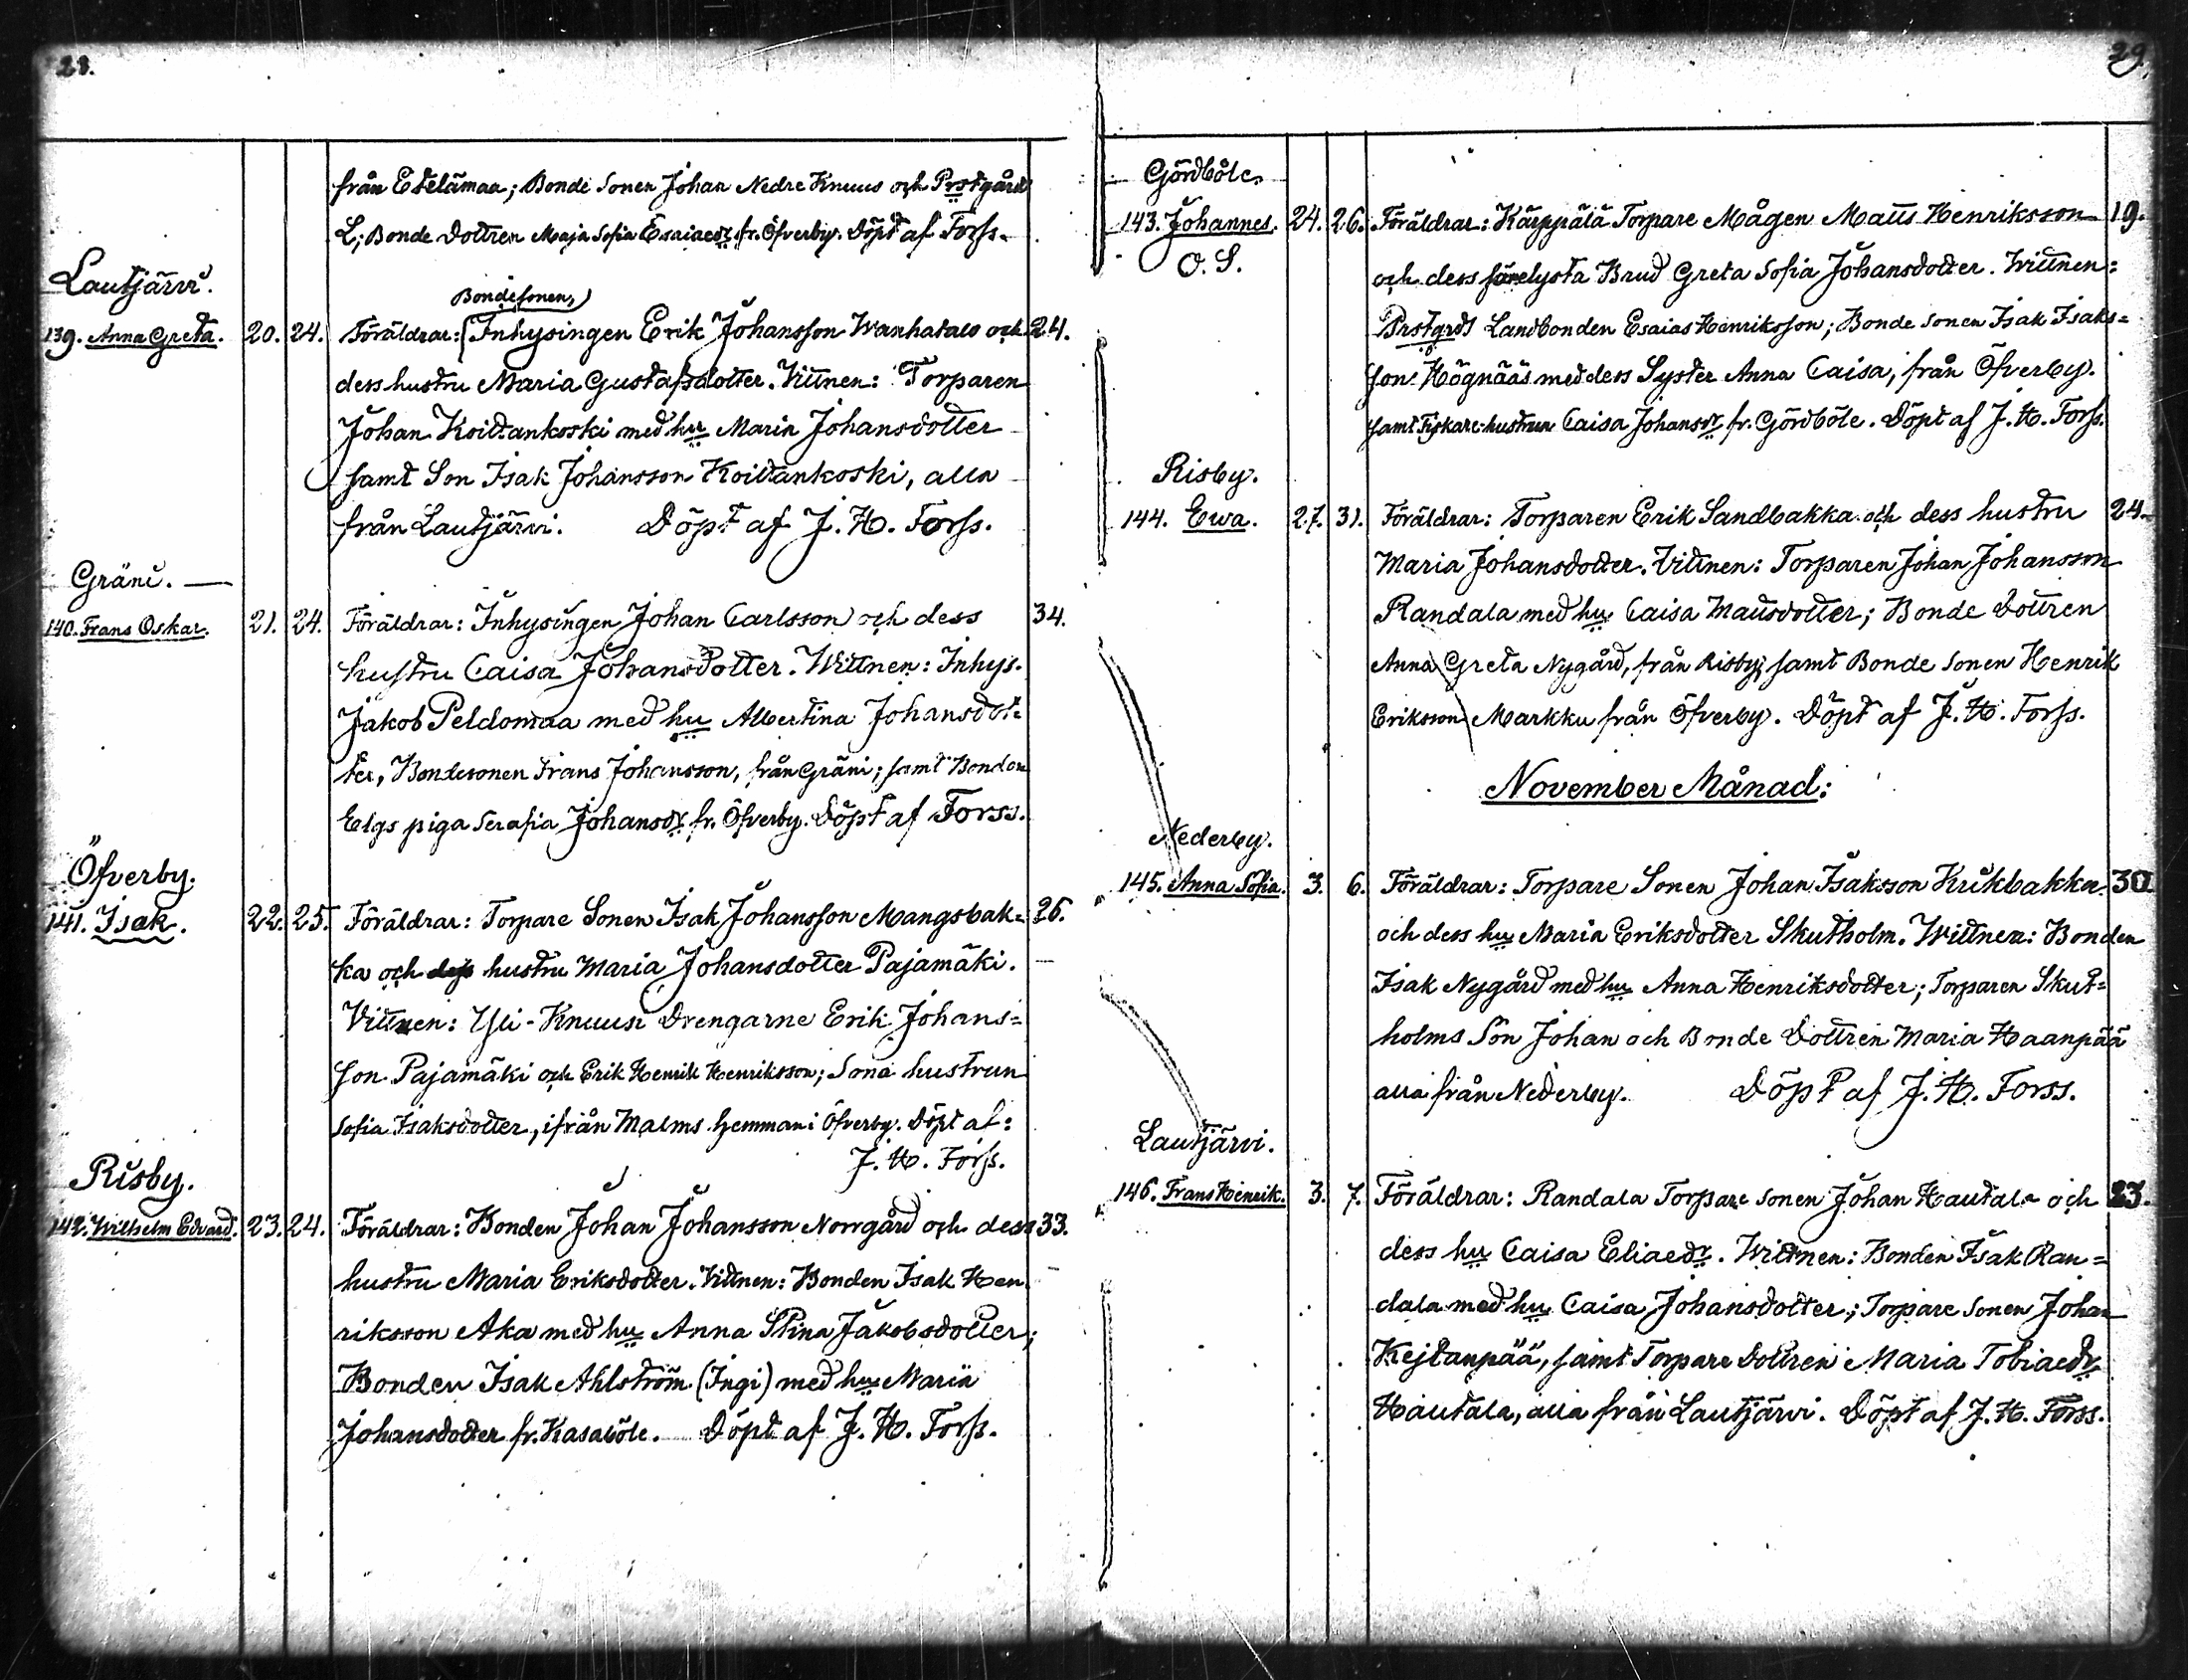 28.
från Etelämaa; Bonde Sonen Johan Nedre Knuus och Prstgård
L; Bonde Dottren Maja Sofia Esaiaedr fr. Öfverby. Döpt af Forss.
Lautjärvi.
Bondesonen,
139. Anna Greta. 20. 24. Föräldrar: Inhysingen Erik Johansson Wanhatalo och 24.
dess hustru Maria Gustafsdotter. Vittnen: Torparen
Johan Koittankoski med hu Maria Johansdotter
samt Son Isak Johansson Koittankoski, alla
från Lautjärvi. Döpt af J. H. Forss.
Gräni.
140. Frans Oskar. 21. 24. Föräldrar: Inhysingen Johan Carlsson och dess 34.
hustru Caisa Johansdotter. Wittnen: Inhys.
Jakob Peldomaa med hu Albertina Johansdot=
ter, Bondesonen Frans Johansson, från Gräni; samt Bonden
Elgs piga Serafia Johansdr fr. Öfverby. Döpt af Forss.
Öfverby.
141. Isak. 22. 25. Föräldrar: Torpare Sonen Isak Johansson Mangsbak= 26.
ka och dess hustru Maria Johansdotter Pajamäki.
Vittnen: Yli-Knuusi Drengarne Erik Johans=
son Pajamäki och Erik Henrik Henriksson; Sona hustrun
Sofia Isaksdotter, ifrån Malms hemman i Öfverby. Döpt af:
J. H. Forss.
Risby.
142. Wilhelm Edvard. 23. 24. Föräldrar: Bonden Johan Johansson Norrgård och dess 33.
hustru Maria Eriksdotter. Vittnen: Bonden Isak Hen
riksson Aka med hu Anna Stina Jakobsdotter;
Bonden Isak Ahlström (Ingi) med hu Maria
Johansdotter fr. Kasaböle. Döpt af J. H. Forss.
29.
Gördböle.
143. Johannes. 24. 26. Föräldrar: Kärppälä Torpare Mågen Matts Henriksson 19.
O. S.
och dess förelysta Brud Greta Sofia Johansdotter. Wittnen:
Prstgrds Landbonden Esaias Henriksson; Bonde Sonen Isak Isaks=
son Högnääs med dess Syster Anna Caisa, från Öfverby.
samt Fiskare-hustrun Caisa Johansdr fr. Gördböle. Döpt af J. H. Forss.
Risby.
144. Ewa. 27. 31. Föräldrar: Torparen Erik Sandbakka och dess hustru 24.
Maria Johansdotter. Vittnen: Torparen Johan Johansson
Randala med hu Caisa Mattsdotter; Bonde Dottren
Anna Greta Nygård, från Risby; samt Bonde Sonen Henrik
Eriksson Markku från Öfverby. Döpt af J. H. Forss.
November Månad:
Nederby.
145. Anna Sofia. 3. 6. Föräldrar: Torpare Sonen Johan Isaksson Krikbakka 30
och dess hu Maria Eriksdotter Skutholm. Wittnen: Bonden
Isak Nygård med hu Anna Henriksdotter; Torparen Skut=
holms Son Johan och Bonde Dottren Maria Haanpää
alla från Nederby. Döpt af J. H. Forss.
Lautjärvi.
146. Frans Henrik. 3. 7. Föräldrar: Randala Torpare Sonen Johan Hautala och 23.
dess hu Caisa Eliaedr. Wittnen: Bonden Isak Ran=
dala med hu Caisa Johansdotter; Torpare Sonen Johan
Kejtanpää, samt Torpare Dottren Maria Tobiaedr
Hautala, alla från Lautjärvi. Döpt af J. H. Forss.